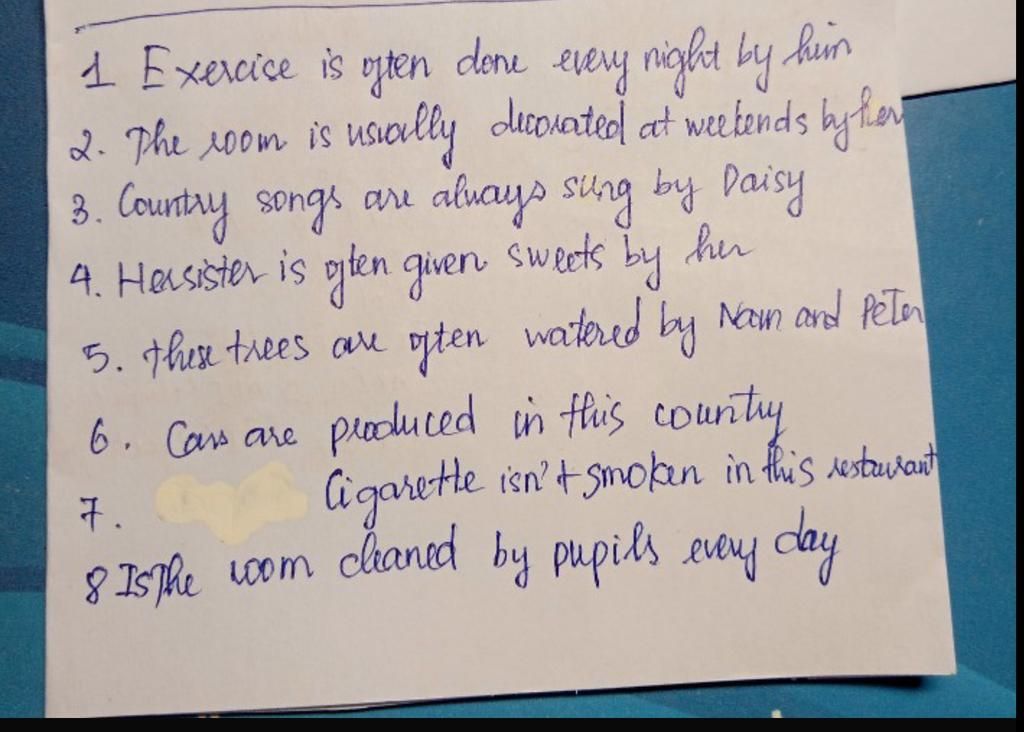 1 Exercise is often done every night by him
2. The room is usually decorated at weekends by her
3. Country songs are always sung by Daisy
4. Her sister is often given sweets by her
5. these trees are often watered by Nam and Peter
6. Cars are produced in this country
7. Cigarette isn't smoken in this restaurant
8 Is The room cleaned by pupils every day